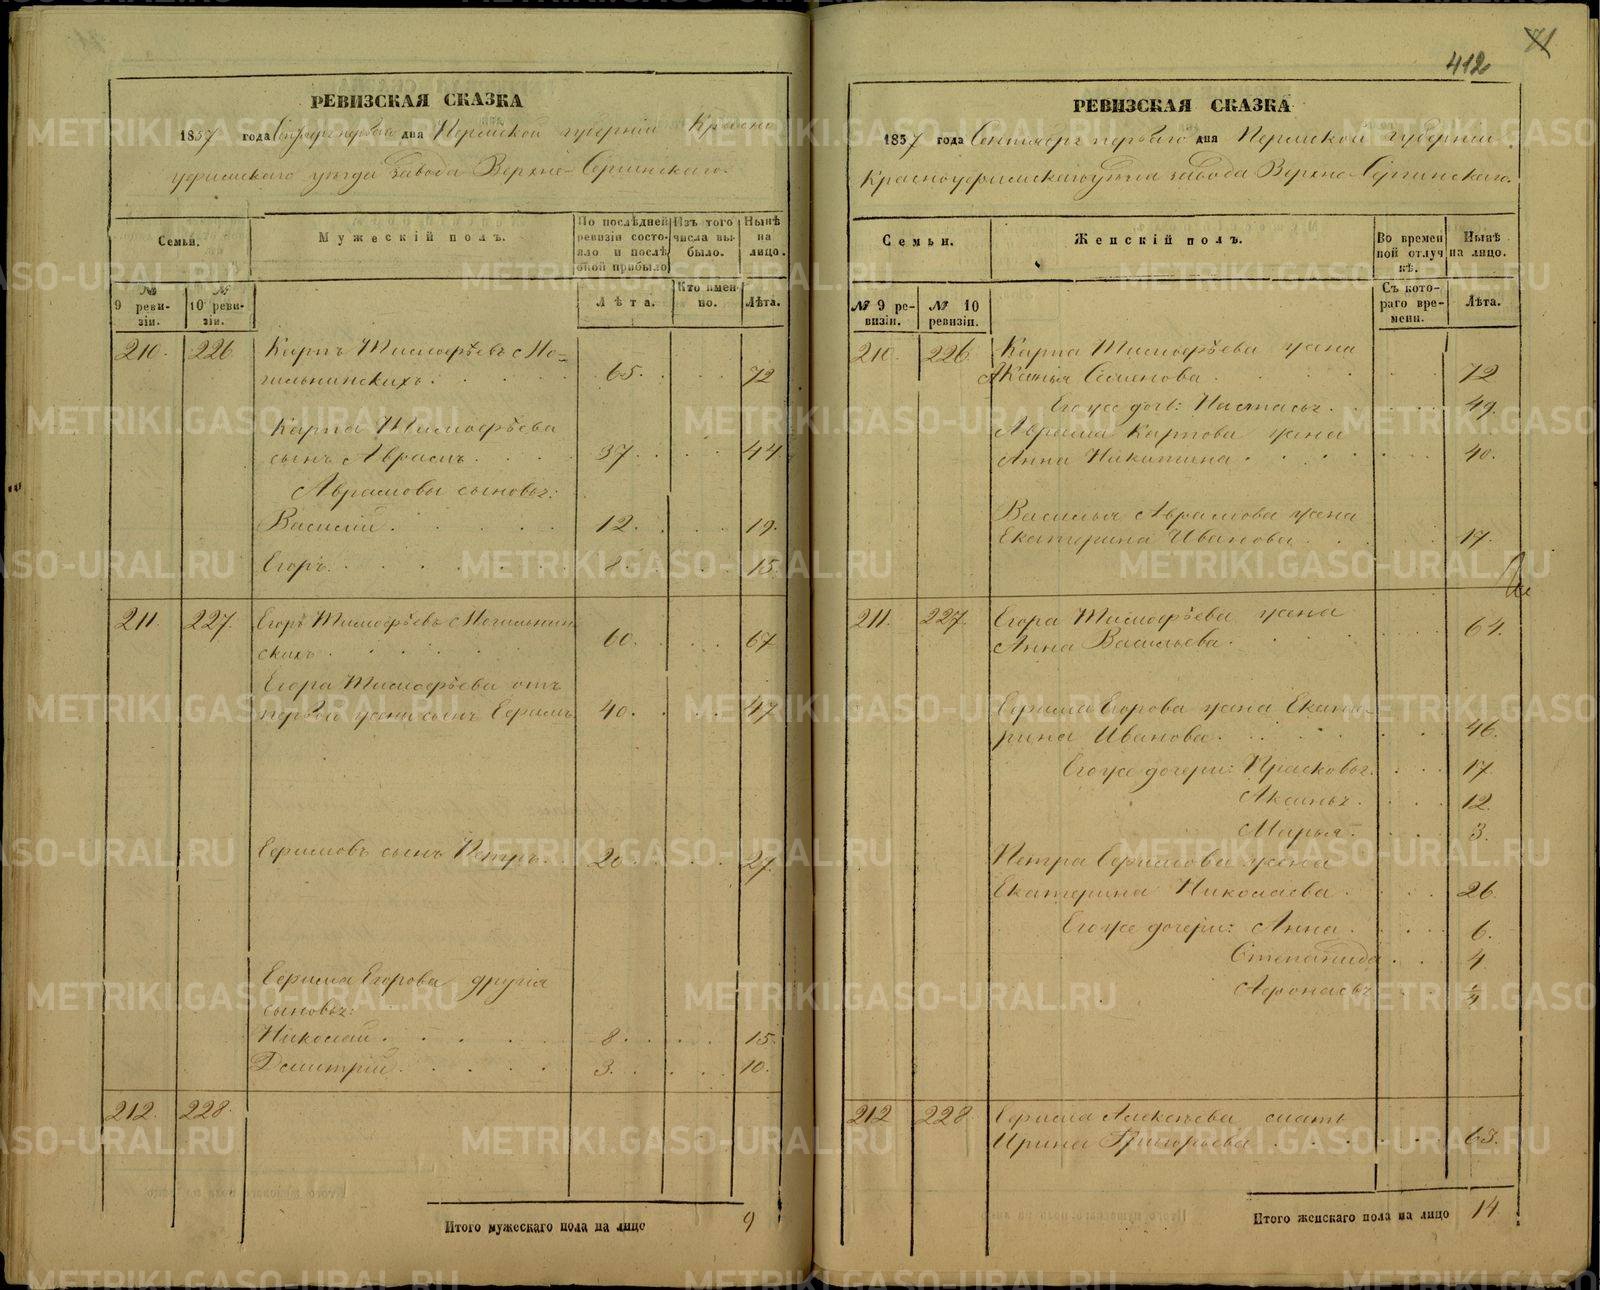 412
71
РЕВИЗСКАЯ СКАЗКА
1857 года Сентября перваго дня Пермской губерніи Красно
уфимскаго уезда завода Верхне-Сергинскаго.
Семьи.
Мужескій полъ.
По послѣдней ревизіи состояло и послѣ оной прибыло
Изъ того числа выбыло.
Нынѣ на лицо.
№ 9 ревизіи.
№ 10 ревизіи.
Лѣта.
Кто именно.
Лѣта.
210. 226 Карпъ Тимофѣевъ Мо-
гильнинскихъ. 65. 72
Карпа Тимофѣева
сынъ Аврамъ. 37. 44
Аврамовы сыновья:
Василій. 12. 19.
Егоръ. 8. 15.
211. 227. Егоръ Тимофѣевъ Могильнин
скихъ. 60. 67
Егора Тимофѣева отъ
первой жены сынъ Ефимъ 40. 47
Ефимовъ сынъ Петръ. 20. 27.
Ефима Егорова другія
сыновья:
Николай. 8. 15.
Дмитрій. 3. 10.
212. 228.
Итого мужескаго пола на лицо 9
РЕВИЗСКАЯ СКАЗКА
1857 года Сентября перваго дня Пермской губерніи
Красноуфимскаго уезда завода Верхне-Сергинскаго.
Семьи.
Женскій полъ.
Во временной отлучкѣ.
Нынѣ на лицо.
№ 9 ревизіи.
№ 10 ревизіи.
Съ котораго времени.
Лѣта.
210. 226. Карпа Тимофѣева жена
Аксинья Семенова. 72
Его же дочь: Настасья. 49.
Аврама Карпова жена
Анна Никитина. 40.
Василья Аврамова жена
Екатерина Иванова. 17.
211. 227. Егора Тимофѣева жена
Анна Васильева. 64.
Ефима Егорова жена Екате-
рина Иванова. 46.
Его же дочери: Прасковья. 17.
Аксинья. 12.
Марья. 3.
Петра Ефимова жена
Екатерина Николаева. 26.
Его же дочери: Анна. 6.
Степанида. 4
Афонасья
212 228. Ефима Алексѣева мать
Ирина Григорьева. 63.
Итого женскаго пола на лицо 14.
METRIKI.GASO-URAL.RU